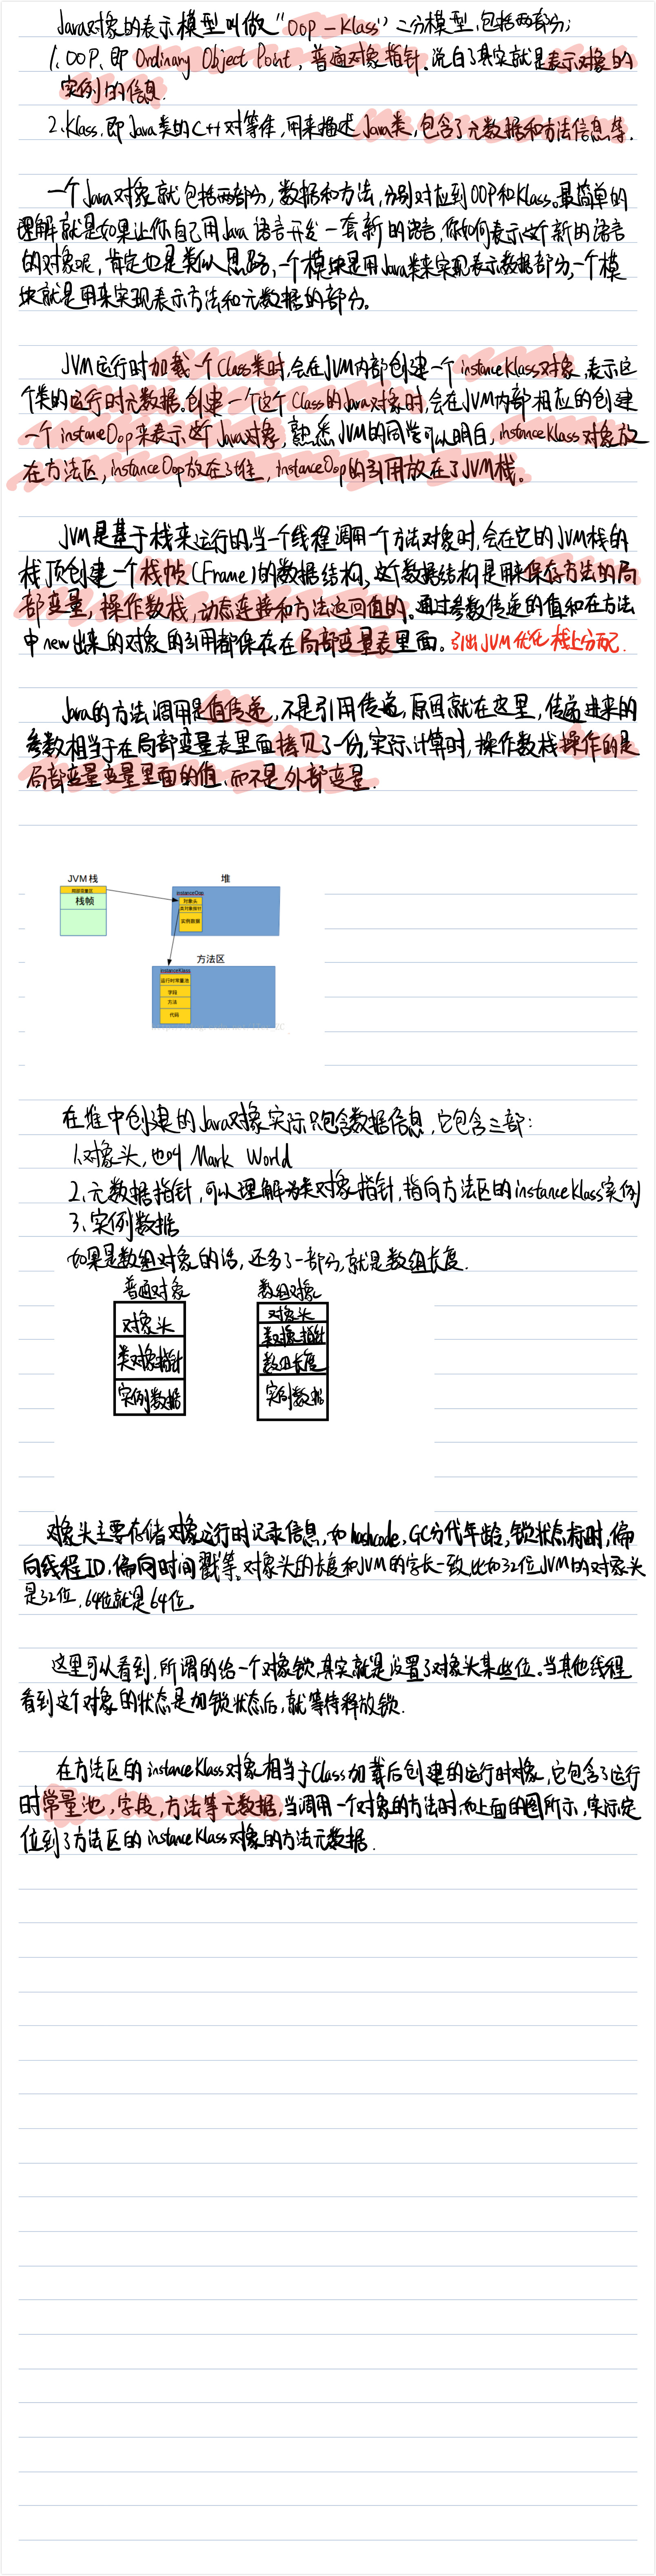 Java对象的表示模型叫做“OOP-Klass”二分模型,包括两部分;
1.OOP,即Ordinary Object Point,普通对象指针。说白了其实就是表示对象的
实例的信息.
2.Klass,即Java类的C++对等体,用来描述Java类,包含了元数据和方法信息等.
一个Java对象就包括两部分,数据和方法,分别对应到OOP和Klass。最简单的
理解就是如果让你自己用Java语言开发一套新的语言,你如何表示这个新的语言
的对象呢,肯定也是类似思路,一个模块是用Java类来实现表示数据部分,一个模
块就是用来实现表示方法和元数据的部分。
JVM运行时加载一个Class类时,会在JVM内部创建一个instanceKlass对象,表示这
个类的运行时元数据。创建一个这个Class的Java对象时,会在JVM内部相应的创建
一个instanceOop来表示这个Java对象,熟悉JVM的同学可以明白,instanceKlass对象放
在方法区,instanceOop放在了堆,instanceOop的引用放在了JVM栈。
JVM是基于栈来运行的,当一个线程调用一个方法对象时,会在它的JVM栈的
栈顶创建一个栈帧(Frame)的数据结构,这个数据结构是用来保存方法的局
部变量,操作数栈,动态连接和方法返回值的。通过参数传递的值和在方法
中new出来的对象的引用都保存在局部变量表里面。引出JVM优化 栈上分配.
Java的方法调用是值传递,不是引用传递,原因就在这里,传递进来的
参数相当于在局部变量表里面拷贝了一份,实际计算时,操作数栈操作的是
局部变量变量里面的值,而不是外部变量.
JVM 栈
堆
局部变量区
栈帧
instanceOop
对象头
类对象指针
实例数据
方法区
instanceKlass
运行时常量池
字段
方法
代码
在堆中创建的Java对象实际只包含数据信息,它包含三部:
1.对象头,也叫 Mark World
2.元数据指针,可以理解为类对象指针,指向方法区的instanceKlass实例
3.实例数据
如果是数组对象的话,还多了一部分,就是数组长度.
普通对象 数组对象
对象头 对象头
类对象指针 类对象指针
数组长度
实例数据 实例数据
对象头主要存储对象运行时记录信息,如hashcode,GC分代年龄,锁状态标时,偏
向线程ID,偏向时间戳等。对象头的长度和JVM的字长一致,比如32位JVM的对象头
是32位,64位就是64位。
这里可以看到,所谓的给一个对象锁,其实就是设置了对象头某些位。当其他线程
看到这个对象的状态是加锁状态后,就等待释放锁.
在方法区的instanceKlass对象相当于Class加载后创建的运行时对象,它包含了运行
时常量池,字段,方法等元数据,当调用一个对象的方法时,如上面的图所示,实际定
位到了方法区的instanceKlass对象的方法元数据.